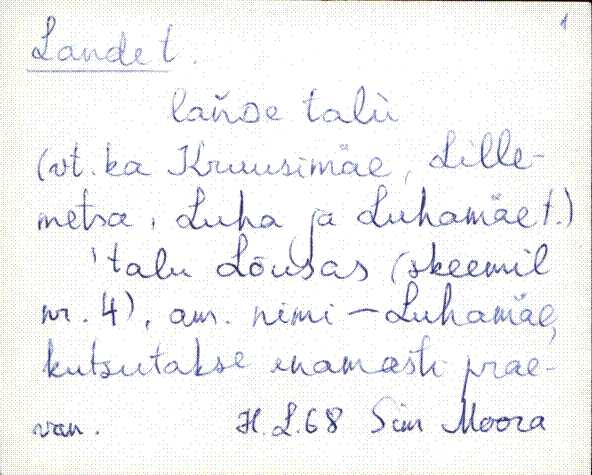 1
Lande t.
lańde talù
(vt. ka Kruusimäe, Lille-
metsa, Luha ja Luhamäe t.)
'talu Lõusas (skeemil
nr. 4), am. nimi – Luhamäe,
kutsutakse enamasti prae-
van. H.L.68 Siiri Moora